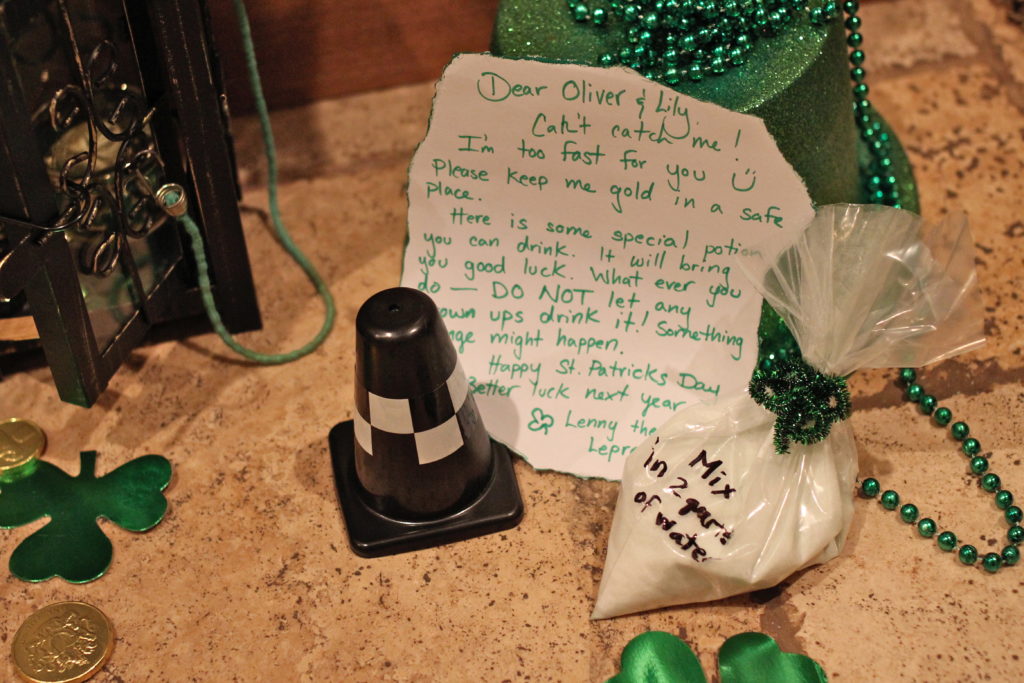 Dear Oliver & Lily,
Can't catch me!
I'm too fast for you
Please keep me gold in a safe
place.
Here is some special potion
you can drink. It will bring
you good luck. What ever you
do — DO NOT let any
ups drink it! Something
might happen.
Happy St. Patricks Day
Better luck next year
Lenny the
Mix
in 2 quarts
of water